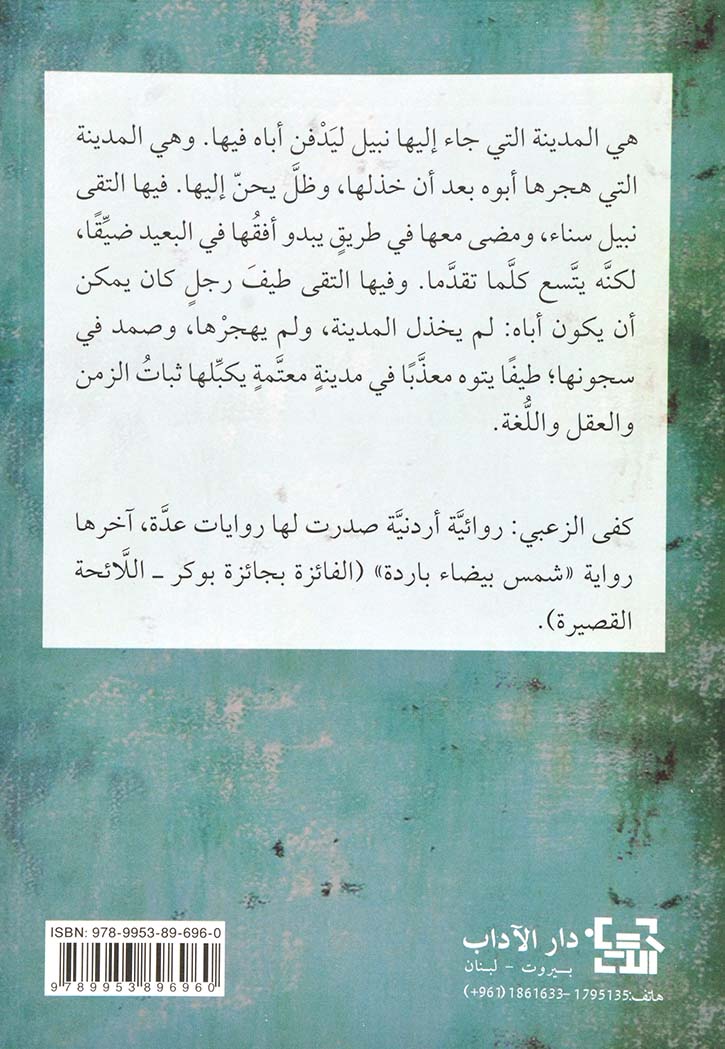 هي المدينة التي جاء إليها نبيل ليَدْفن أباه فيها. وهي المدينة
التي هجرها أبوه بعد أن خذلها، وظلَّ يحنّ إليها. فيها التقى
نبيل سناء، ومضى معها في طريقٍ يبدو أفقُها في البعيد ضيِّقًا،
لكنَّه يتَّسع كلَّما تقدَّما. وفيها التقى طيفَ رجلٍ كان يمكن
أن يكون أباه: لم يخذل المدينة، ولم يهجرْها، وصمد في
سجونها؛ طيفًا يتوه معذَّبًا في مدينةٍ معتَّمةٍ يكبِّلها ثباتُ الزمن
والعقل واللُّغة.
كفى الزعبي: روائيَّة أردنيَّة صدرت لها روايات عدَّة، آخرها
رواية «شمس بيضاء باردة» (الفائزة بجائزة بوكر ـ اللَّائحة
القصيرة).
ISBN: 978-9953-89-696-0
9 789953 896960
دار الآداب
بيروت - لبنان
هاتف: 1795135-1861633 (961+)